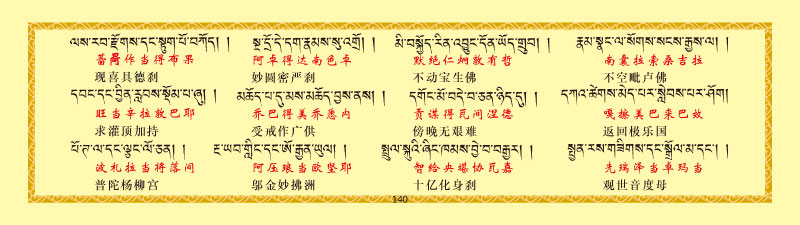 ལས་རབ་རྫོགས་དང་སྟུག་པོ་བཀོད། །  སྔ་དྲོ་དེ་དག་རྣམས་སུ་འགྲོ། །  མི་བསྐྱོད་རིན་འབྱུང་དོན་ཡོད་གྲུབ། །  རྣམ་སྣང་ལ་སོགས་སངས་རྒྱས་ལ། །
作当得布果  阿卓得达南色卓  默绝仁炯敦有哲  南囊拉索桑吉拉
现喜具德刹  妙圆密严刹  不动宝生佛  不空毗卢佛
དབང་དང་བྱིན་རླབས་སྡོམ་པ་ཞུ། །  མཆོད་པ་དུ་མས་མཆོད་བྱས་ནས། །  དགོང་མོ་བདེ་བ་ཅན་ཉིད་དུ། །  དཀའ་ཚེགས་མེད་པར་སླེབས་པར་ཤོག།
旺当辛拉敦巴耶  乔巴得美乔悉内  贡谋得瓦间涅德  嘎擦美巴来巴故
求灌顶加持  受戒作广供  傍晚无艰难  返回极乐国
པོ་ཏ་ལ་དང་ལྕང་ལོ་ཅན། །  རྔ་ཡབ་གླིང་དང་ཨོ་རྒྱན་ཡུལ། །  སྤྲུལ་སྐུའི་ཞིང་ཁམས་བྱེ་བ་བརྒྱར། །  སྤྱན་རས་གཟིགས་དང་སྒྲོལ་མ་དང་། །
波札拉当将落间  阿压琅当欧坚耶  智给央堪协瓦嘉  先瑞泽当卓玛当
普陀杨柳宫  邬金妙拂洲  十亿化身刹  观世音度母
140